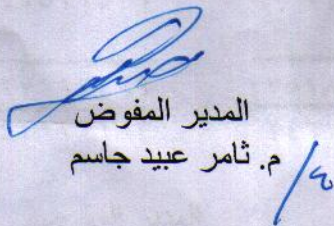 المدير المفوض
م. ثامر عبيد جاسم